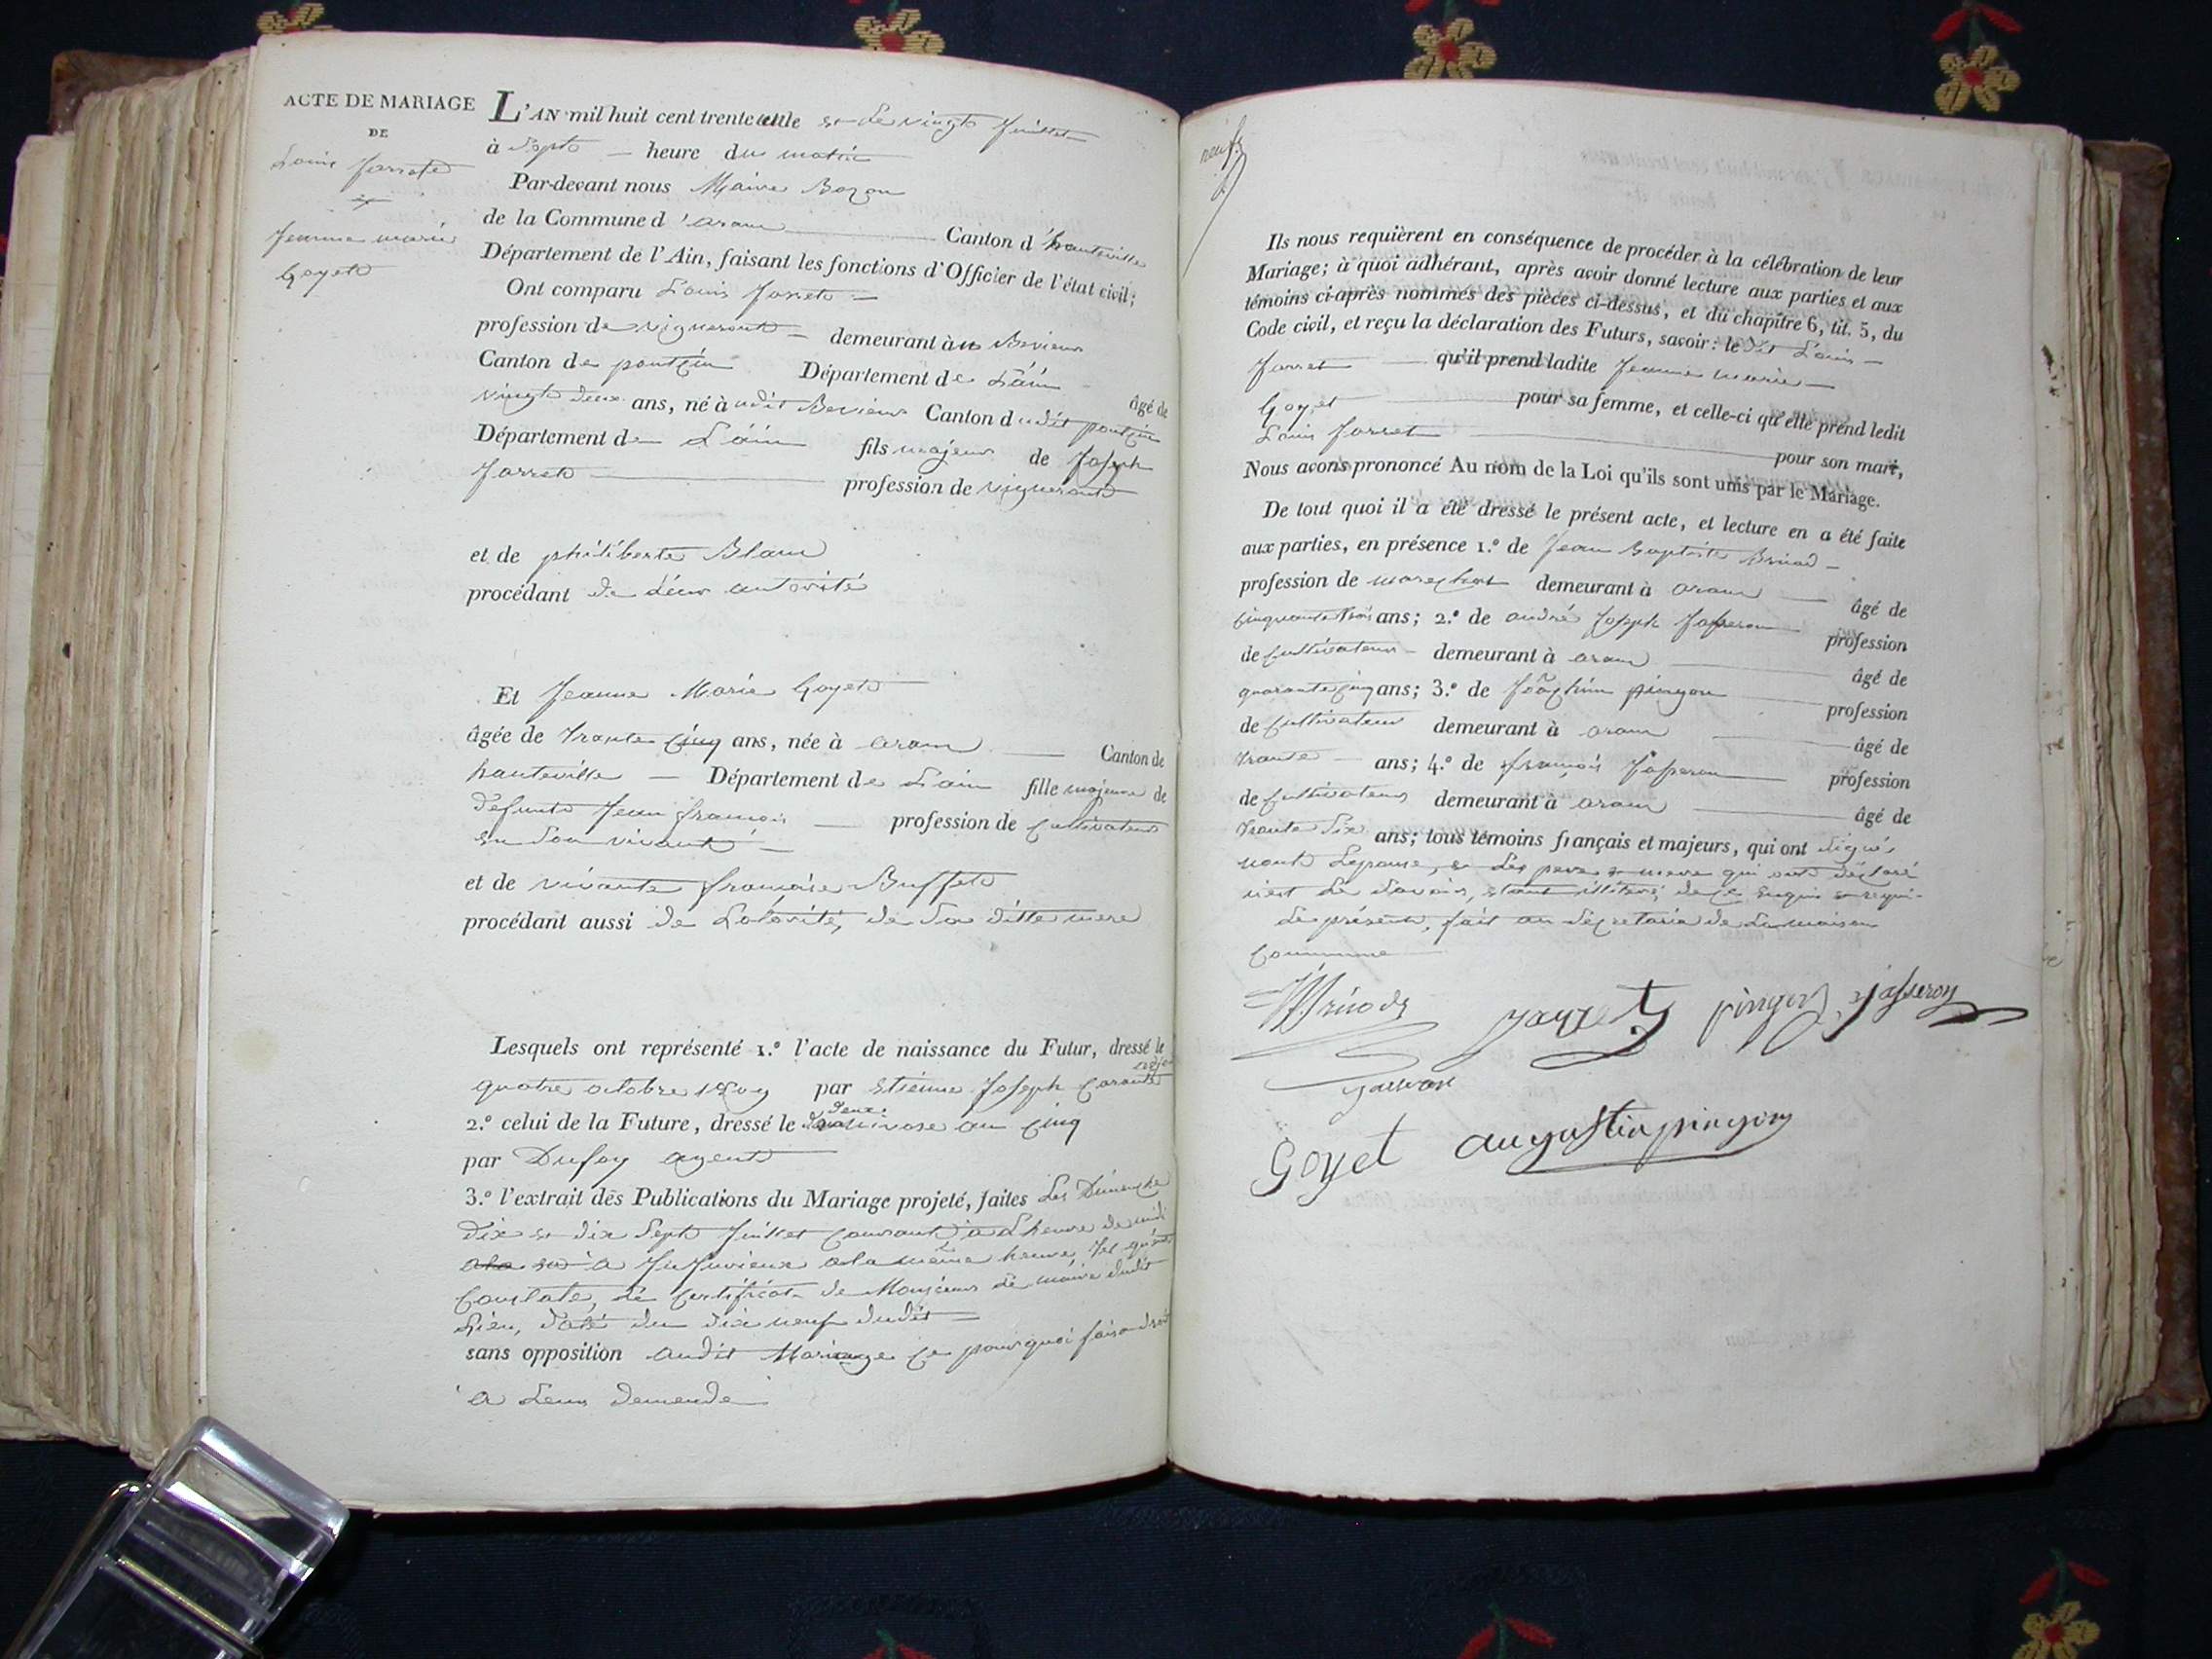 ACTE DE MARIAGE
DE
Louis Jarret
et
Jeanne marie
Goyet
L'AN mil huit cent trente et le vingt Juillet
à Sept — heure du matin
Par-devant nous Maire Bozon
de la Commune d'aran Canton d'hauteville
Département de l'Ain, faisant les fonctions d'Officier de l'état civil;
Ont comparu Louis Jarret
profession de vigneront demeurant à Bevieux
Canton de pontcin Département de L'ain âgé de
vingt deux ans, né à udit Bevieux Canton dudit pontcin
Département de L'ain fils majeur de Joseph
Jarret profession de vigneront
et de philiberte Blanc
procédant de Leur autorité
Et Jeanne Marie Goyet
âgée de Trante Cinq ans, née à aran Canton de
hauteville — Département de L'ain fille majeure de
defunt Jean françois profession de Cultivateur
en Son vivant
et de vivante françoise Buffet
procédant aussi de Lotorité, de Sa ditte mere
Lesquels ont représenté 1.º l'acte de naissance du Futur, dressé le
quatre octobre 1809 par Etienne Joseph Carant
2.º celui de la Future, dressé le deux nivose an Cinq
par Dufoy agent
3.º l'extrait des Publications du Mariage projeté, faites Les Dimenche
Dix et dix Sept Juillet Courant, à L'heure de midi
et à Jujurieux a la même heure, Tel qu'en
Constate, Le Certificat de Monsieur Le maire dudit
Lieu, daté du dix neuf dudit
sans opposition audit Mariage Ce pourquoi faisa droit
a Leur Demende
neuf
Ils nous requièrent en conséquence de procéder à la célébration de leur
Mariage; à quoi adhérant, après avoir donné lecture aux parties et aux
témoins ci-après nommés des pièces ci-dessus, et du chapitre 6, tit. 5, du
Code civil, et reçu la déclaration des Futurs, savoir: le dit Louis
Jarret qu'il prend ladite Jeanne marie
Goyet pour sa femme, et celle-ci qu'elle prend ledit
Louis Jarret pour son mari,
Nous avons prononcé Au nom de la Loi qu'ils sont unis par le Mariage.
De tout quoi il a été dressé le présent acte, et lecture en a été faite
aux parties, en présence 1.º de Jean Baptiste Briod
profession de marechal demeurant à aran âgé de
Cinquante trois ans; 2.º de andré Joseph Jasseron profession
de Cultivateur demeurant à aran âgé de
quarante Cinq ans; 3.º de Joachim pingon profession
de Cultivateur demeurant à aran âgé de
Trante ans; 4.º de françois Jasseron profession
de Cultivateur demeurant à aran âgé de
Trante Six ans; tous témoins français et majeurs, qui ont Signé,
nont Lepouse, et Les pere et mere qui ont déclaré
ne Le Savoir, etant illitéré, de Ce Enquis et requi
Le présent, fait au Secretaria de La maison
Commune
Briod
jarret pingon jasseron
Goyet augustin pingon